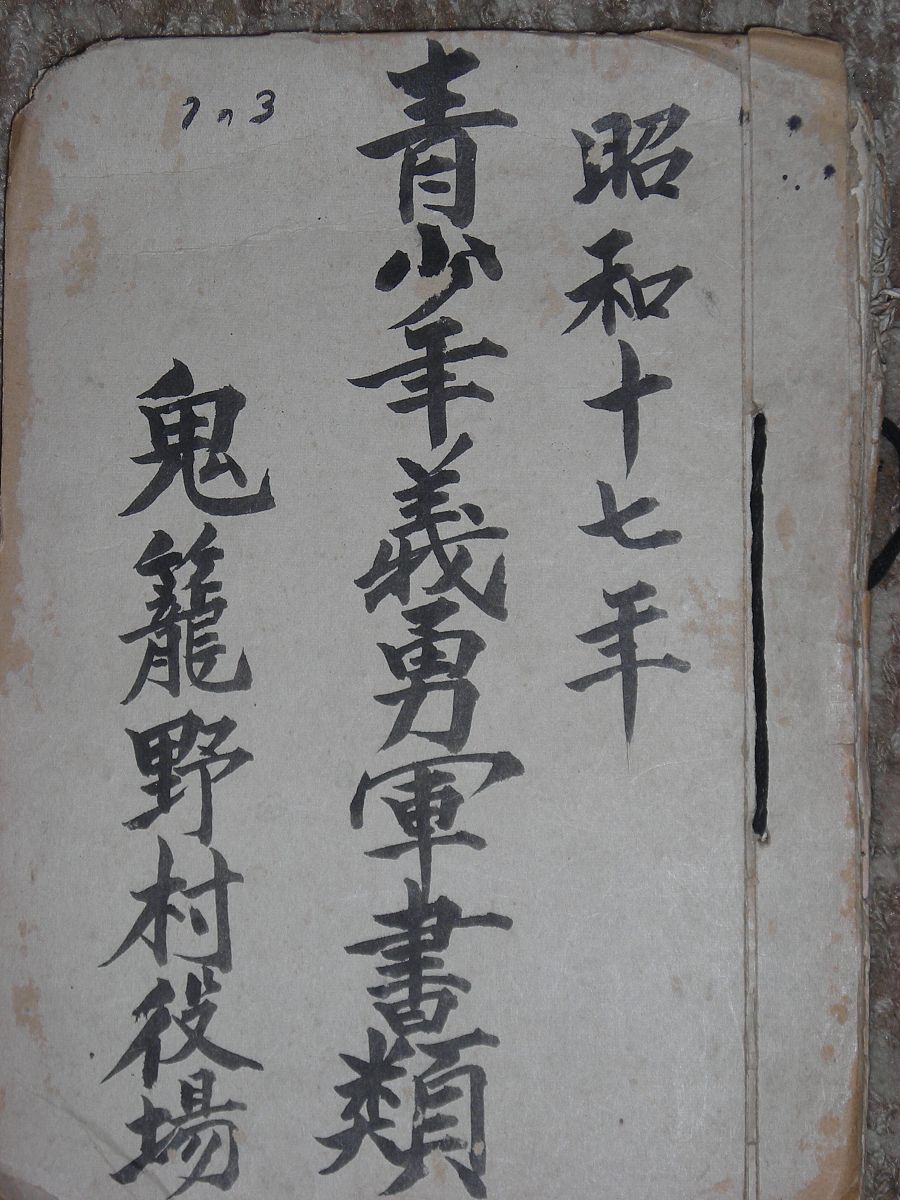 昭和十七年
青少年義勇軍書類
鬼籠野村役場
1の3